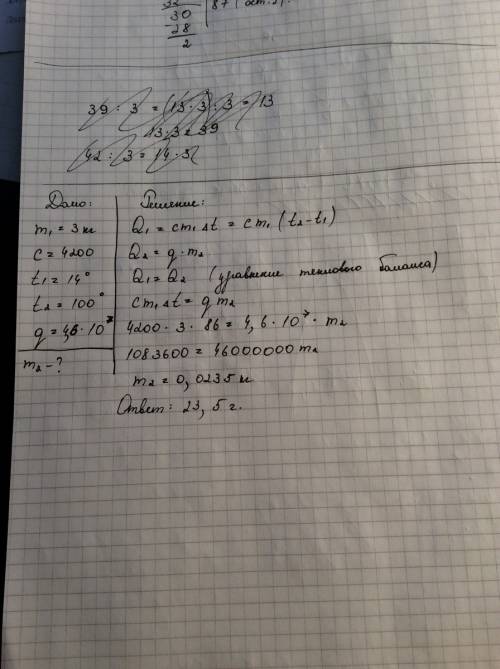 32
87 (ост.2).
30
28
2
39 : 3 = (13 · 3) : 3 = 13
13·3=39
42 : 3 = 14 · 3
Дано:
m₁ = 3 кг
c = 4200
t₁ = 14°
t₂ = 100°
q = 4,6 · 10⁷
m₂ - ?
Решение:
Q₁ = cm₁ Δt = cm₁ (t₂ - t₁)
Q₂ = q · m₂
Q₁ = Q₂ (уравнение теплового баланса)
cm₁ Δt = q m₂
4200 · 3 · 86 = 4,6 · 10⁷ · m₂
1083600 = 46000000 m₂
m₂ = 0,0235 кг
Ответ: 23,5 г.